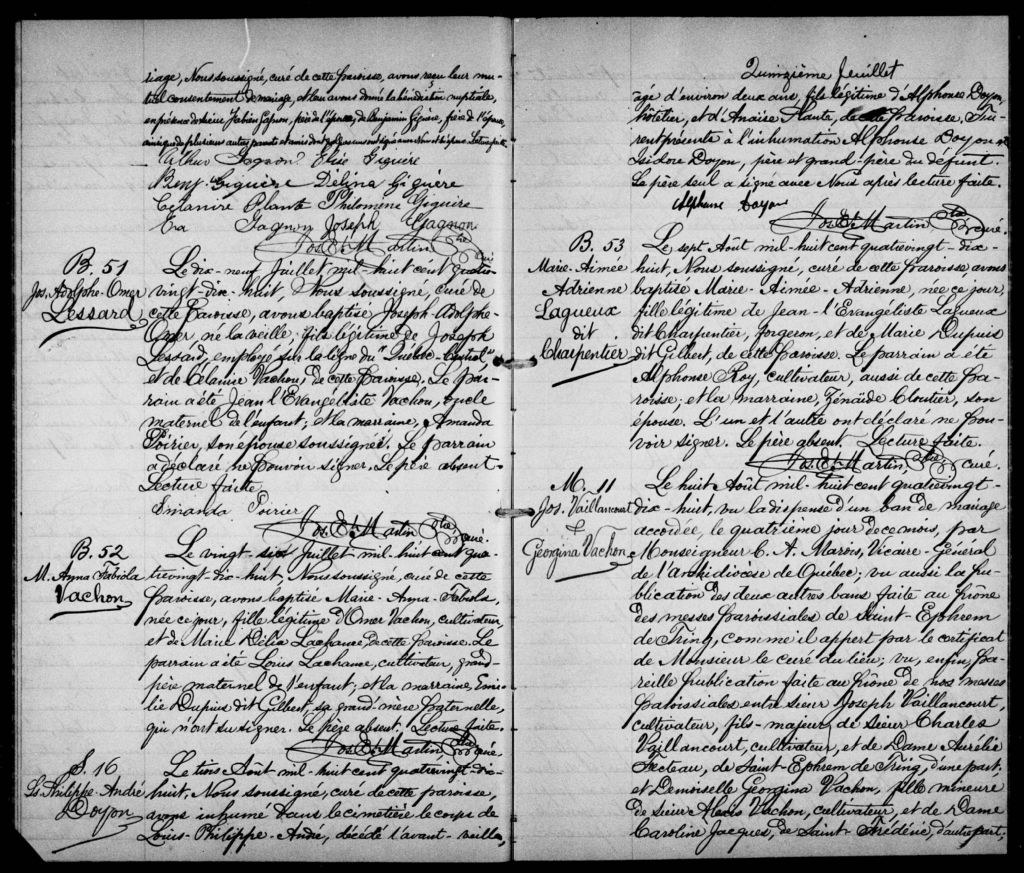 riage, Nous soussigné, curé de cette paroisse, avons reçu leur mu-
tuel consentement de mariage, et leur avons donné la bénédiction nuptiale,
en présence de sieur Fabien Gagnon, père de l'époux, de Benjamin Giguère, frère de l'épouse,
ainsi que de plusieurs autres parents et amis dont quelques uns ont signé avec Nous et les époux. Lecture faite.
Arthur Gagnon Elise Giguère
Benj. Giguère Délina Giguère
Célanire Plante Philomène Giguère
Eva Gagnon Joseph Gagnon
Jos. Et. Martin Ptre Curé
B. 51
Jos. Adolphe-Omer
Lessard
Le dix-neuf Juillet mil-huit cent quatre-
vingt-dix-huit, Nous soussigné, curé de
cette Paroisse, avons baptisé Joseph-Adolphe-
Omer, né la veille, fils légitime de Joseph
Lessard, employé sur la ligne du "Québec-Central"
et de Célanire Vachon, de cette Paroisse. Le par-
rain a été Jean l'Evangeliste Vachon, oncle
maternel de l'enfant; et la marraine, Amanda
Poirier, son épouse soussignée. Le parrain
a déclaré ne pouvoir signer. Le père absent.
Lecture faite
Emanda Poirier
Jos. Et. Martin Ptre Curé.
B. 52
M. Anna Fabiola
Vachon
Le vingt-six Juillet mil-huit cent qua-
trevingt-dix-huit, Nous soussigné, curé de cette
paroisse, avons baptisé Marie-Anna-Fabiola,
née ce jour, fille légitime d'Omer Vachon, cultivateur,
et de Marie Délia Lachance, de cette Paroisse. Le
parrain a été Louis Lachance, cultivateur, grand-
père maternel de l'enfant; et la marraine, Emé-
lie Dupuis dit Gilbert, sa grand-mère paternelle,
qui n'ont su signer. Le père absent. Lecture faite.
Jos. Et. Martin Ptre Curé
S. 16
Ls Philippe-André
Doyon
Le trois Août mil-huit cent quatrevingt-dix-
huit, Nous soussigné, curé de cette paroisse,
avons inhumé dans le cimetière le corps de
Louis-Philippe-André, décédé l'avant-veille,
Quinzième feuillet
âgé d'environ deux ans, fils légitime d'Alphonse Doyon,
hôtelier, et d'Anaïse Plante, de cette paroisse. Fu-
rent présents à l'inhumation Alphonse Doyon et
Isidore Doyon, père et grand-père du défunt.
Le père seul a signé avec Nous après lecture faite.
Alphonse Doyon
Jos. Et. Martin Ptre Curé.
B. 53
Marie-Aimée
Adrienne
Lagueux
dit
Charpentier
Le sept Août mil-huit cent quatrevingt-dix-
huit, Nous soussigné, curé de cette paroisse avons
baptisé Marie-Aimée-Adrienne, née ce jour,
fille légitime de Jean-l'Evangéliste Lagueux
dit Charpentier, forgeron, et de Marie Dupuis
dit Gilbert, de cette paroisse. Le parrain a été
Alphonse Roy, cultivateur, aussi de cette pa-
roisse; et la marraine, Zénaïde Cloutier, son
épouse. L'un et l'autre ont déclaré ne pou-
voir signer. Le père absent. Lecture faite.
Jos. Et. Martin, Ptre curé.
M. 11
Jos. Vaillancourt
&
Georgina Vachon
Le huit Août mil-huit cent quatrevingt-
dix-huit, vu la dispense d'un ban de mariage
accordée, le quatrième jour de ce mois, par
Monseigneur C. A. Marois, Vicaire-Général
de l'archidiocèse de Québec; vu aussi la pu-
blication des deux autres bans faite au prône
des messes paroissiales de Saint-Ephrem
de Tring, comme il appert par le certificat
de Monsieur le curé du lieu; vu, enfin, pa-
reille publication faite au prône de nos messes
paroissiales entre sieur Joseph Vaillancourt,
cultivateur, fils-majeur de Sieur Charles
Vaillancourt, cultivateur, et de Dame Aurélie
Fecteau, de Saint-Ephrem de Tring, d'une part,
et Demoiselle Georgina Vachon, fille mineure
de Sieur Alexis Vachon, cultivateur, et de Dame
Caroline Jacques, de Saint-Frédéric, d'autre part,